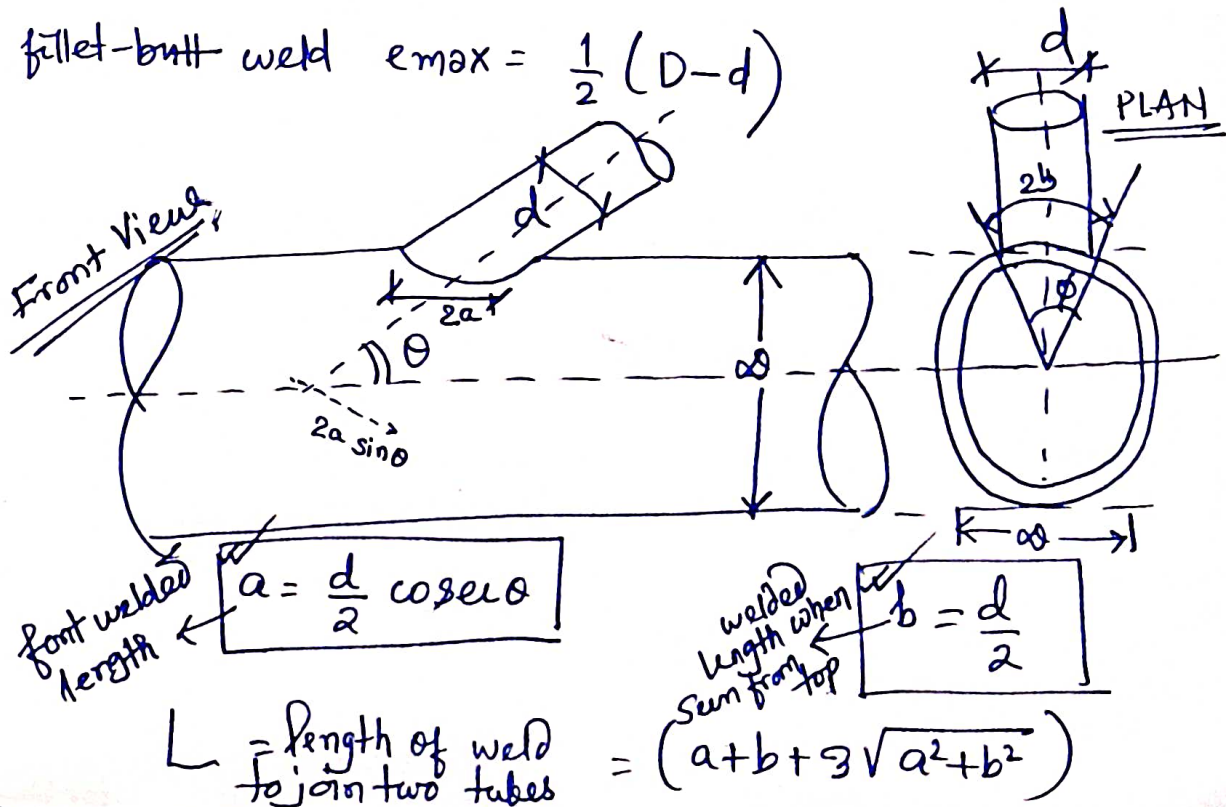 fillet-butt weld emax = 1/2 (D-d)
d
PLAN
Front View
d
2b
2a
θ
ϕ
2a sinθ
D
D
font welded
length
a = d/2 cosecθ
welded
length when
seen from top
b = d/2
L = length of weld
to join two tubes
= (a+b+3√a²+b²)